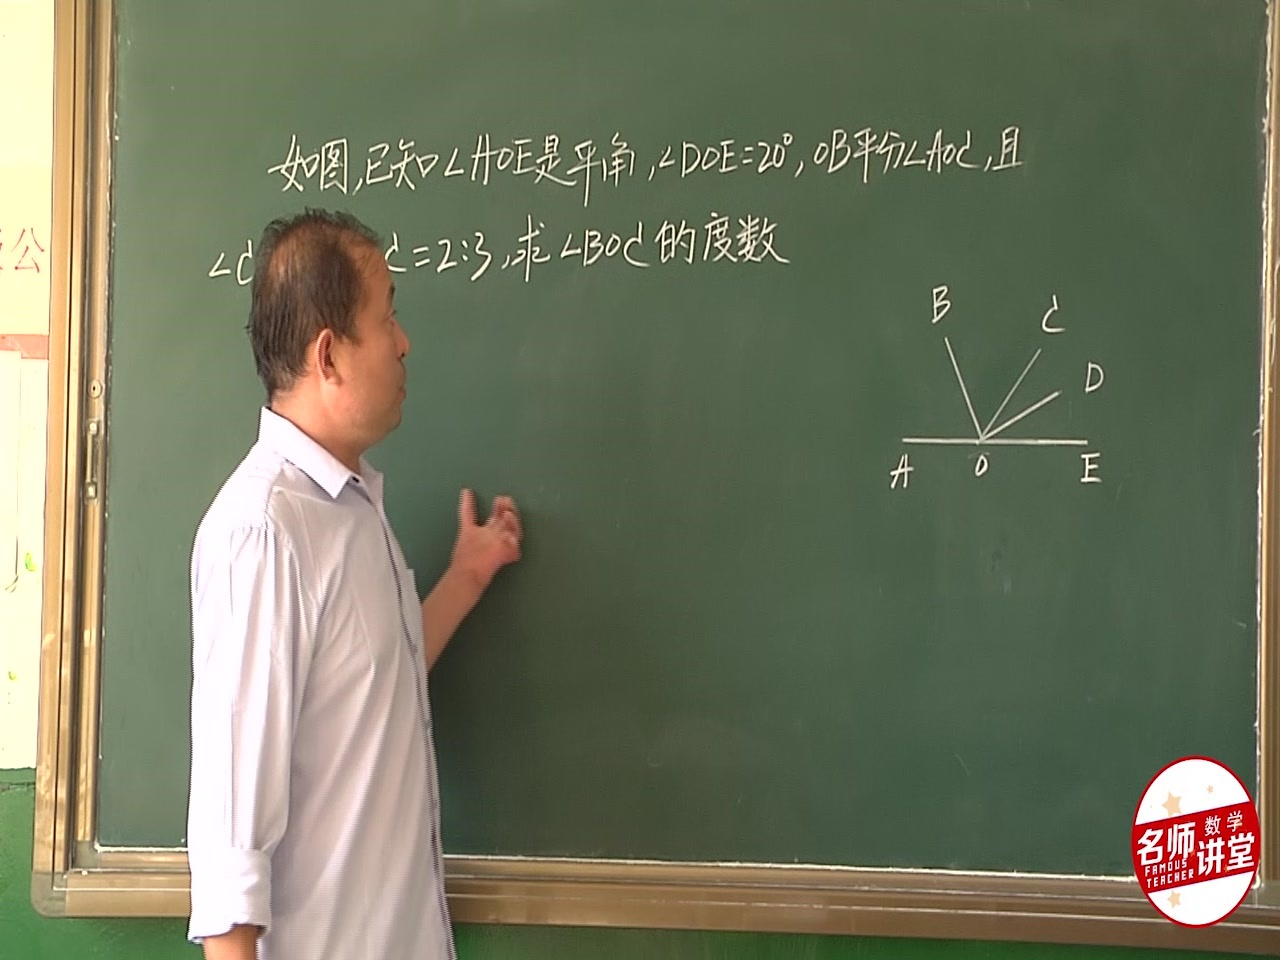 如图,已知∠AOE是平角,∠DOE=20°,OB平分∠AOC,且
∠C
C=2:3,求∠BOC的度数
B
C
D
A
O
E
公
名师
数学
讲堂
FAMOUS
TEACHER